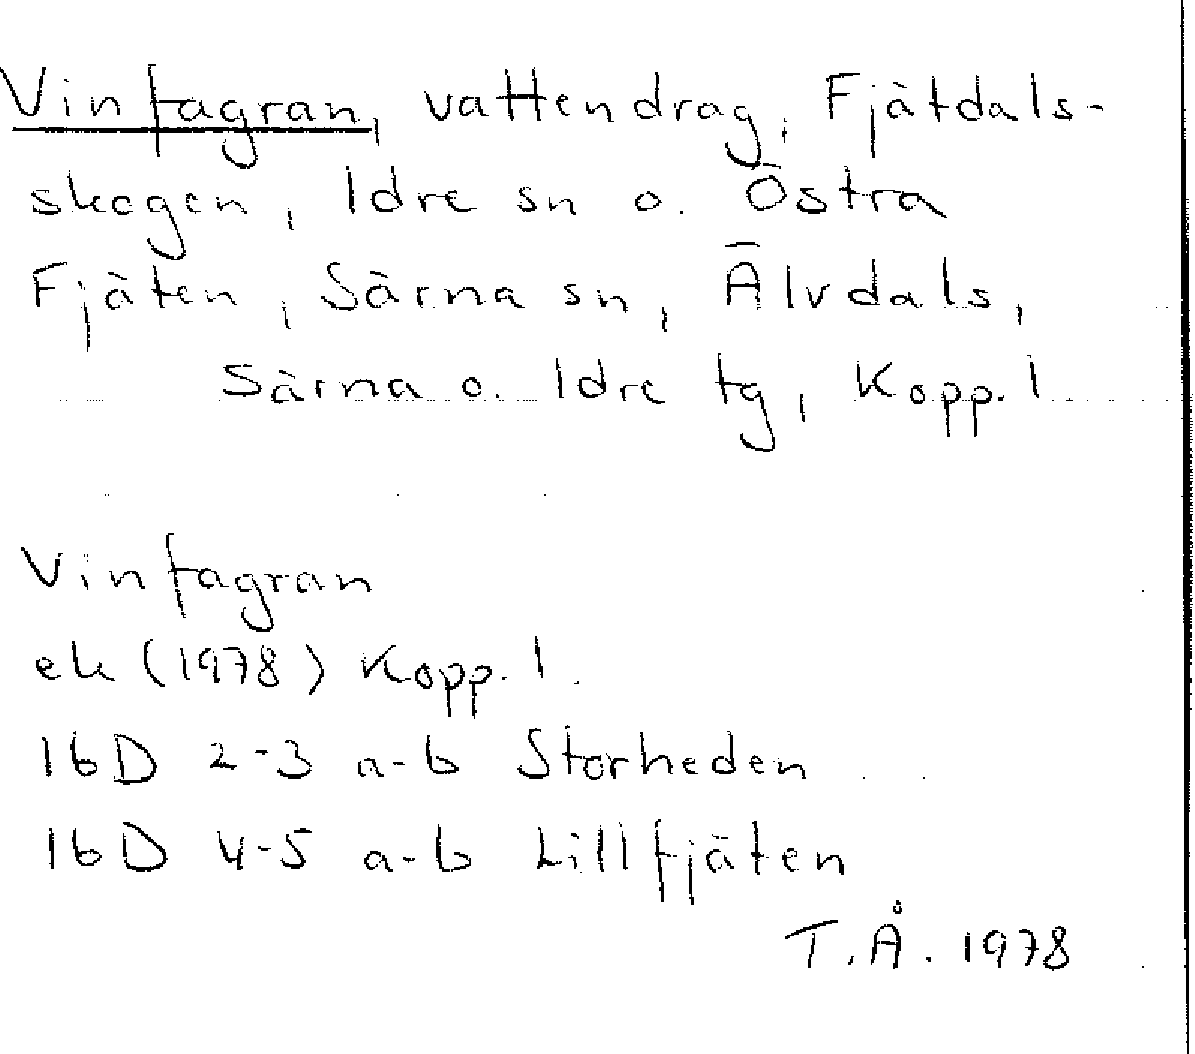 Vinfagran, vattendrag, Fjätdals-
skogen, Idre sn o. Östra
Fjäten, Särna sn, Älvdals,
Särna o. Idre tg, Kopp. l
Vinfagran
ek (1978) Kopp. l.
16D 2-3 a-b Storheden
16D 4-5 a-b Lillfjäten
T.Å. 1978